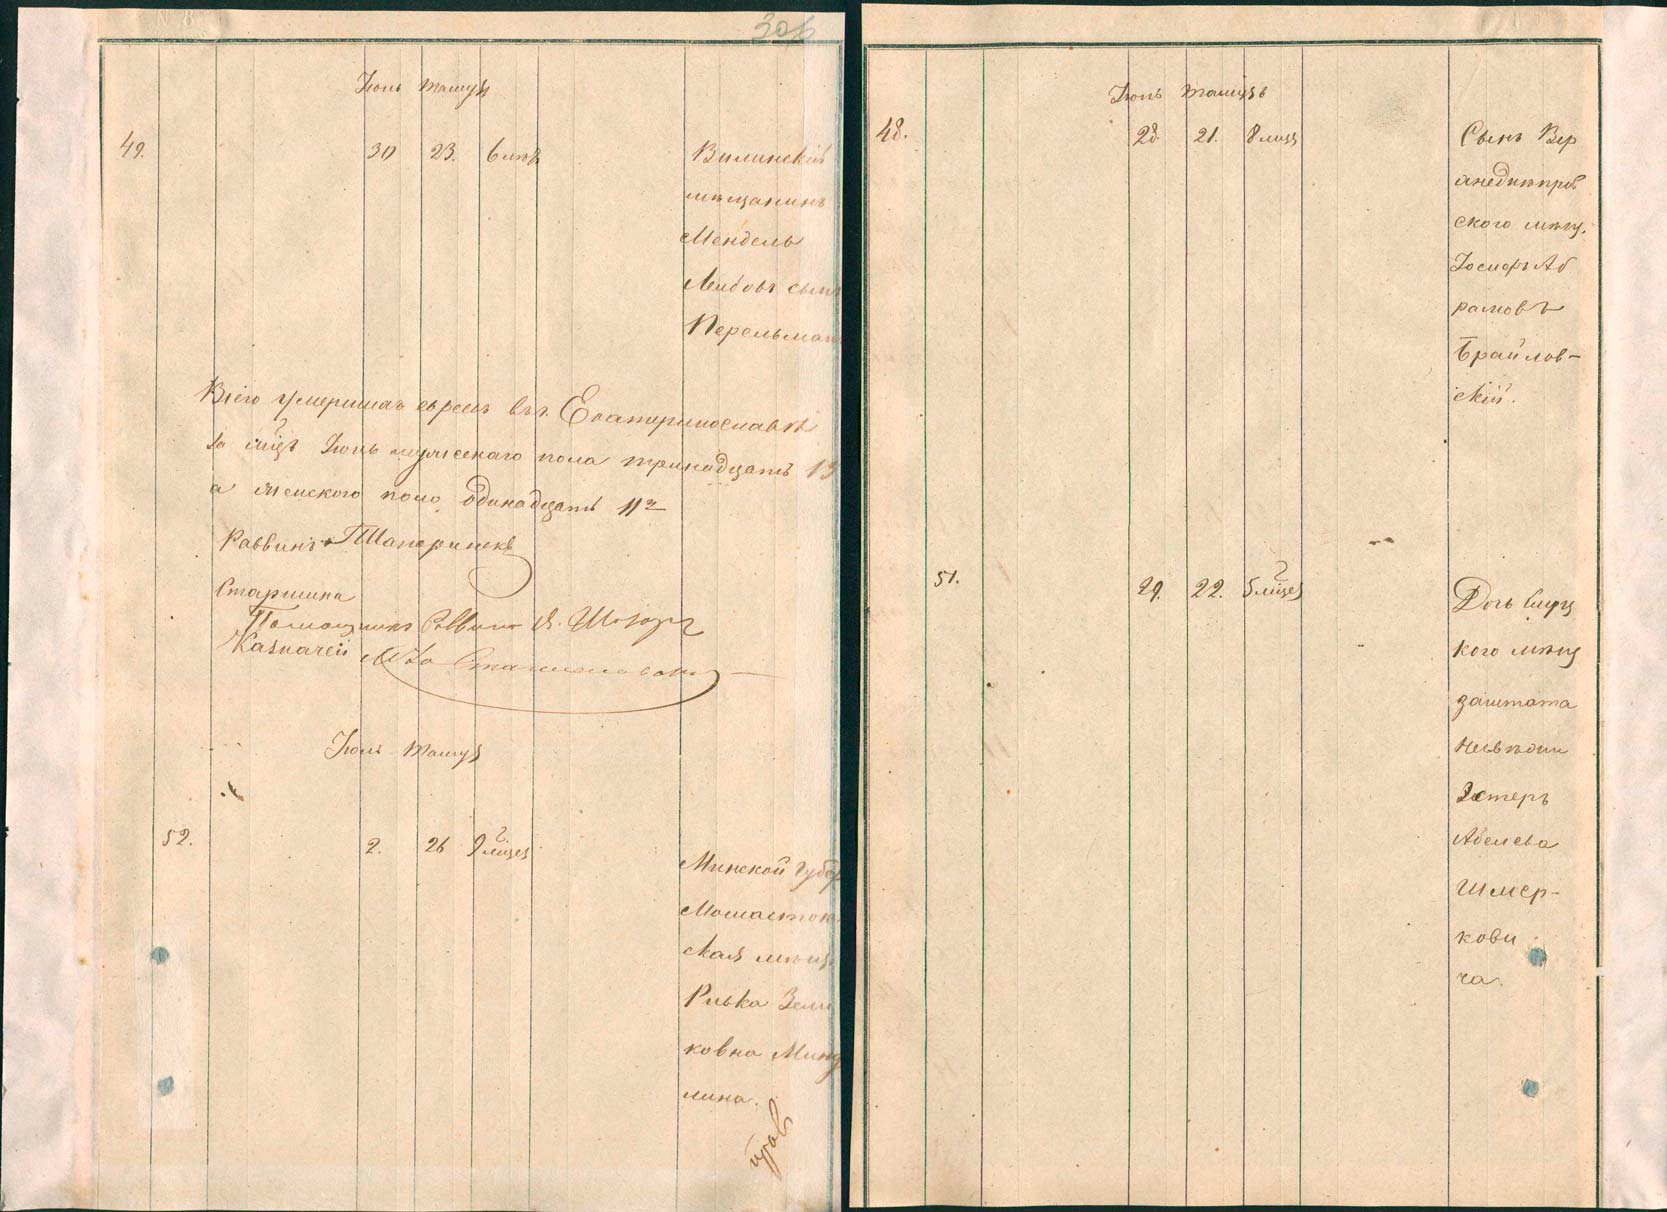 306
Іюнь Тамузъ
49. 30 23. 6 лѣтъ Вилинскій
мѣщанинъ
Мендель
Лейбовъ сынъ
Перельман
Всего умершихъ евреевъ въ г. Екатеринославлѣ
за м-цъ Іюнь мужескаго пола тринадцать 13
а женского пола одинадцать 11
Раввинъ
Старшина
Помощникъ Раввина
Казначей
Іюль Тамузъ
52. 2. 26 9 мцев Минской Губер
ская мѣщ
Ривка Зели
ковна Минд
лина.
Іюнь Тамузъ
48. 28. 21. 8 мцъ Сынъ Вер
хнеднѣпров
ского мѣщ.
Іосифъ Аб
рамовъ
Брайлов-
скій.
51. 29. 22. 5 мцев Дочь
кого мѣщ
заштата
Эстеръ
Абелева
Шмер-
кови
ча.